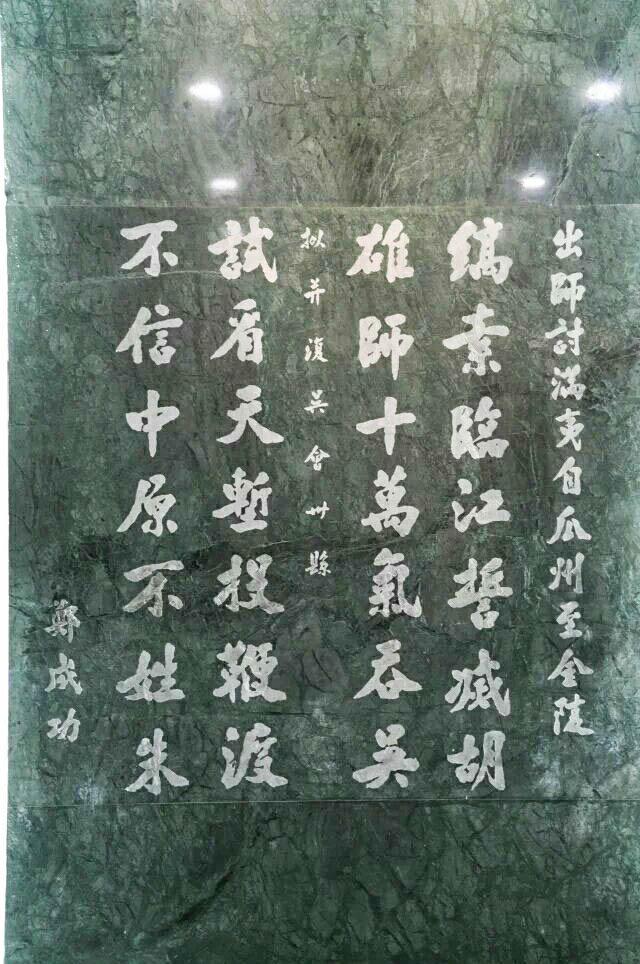 出師討滿夷自瓜州至金陵
縞素臨江誓滅胡
雄師十萬氣吞吳
拟并復吳會州縣
試看天塹投鞭渡
不信中原不姓朱
鄭成功